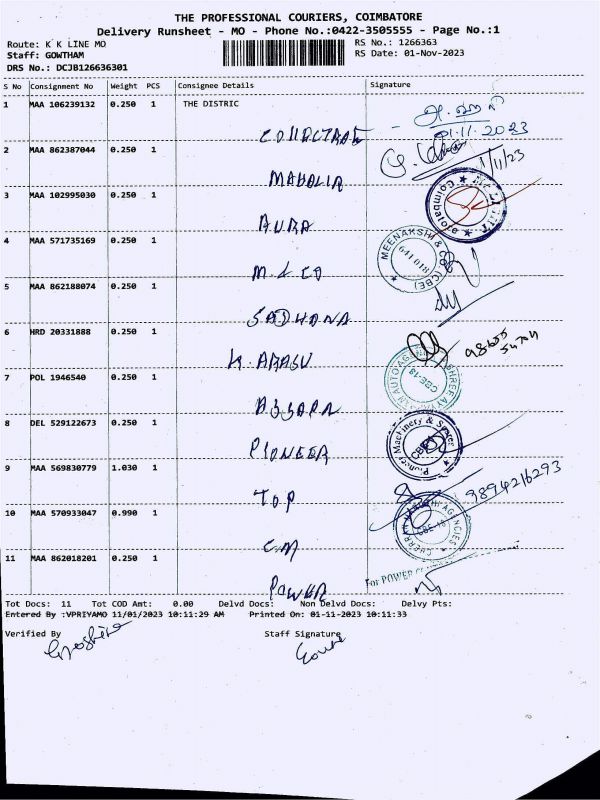 THE PROFESSIONAL COURIERS, COIMBATORE
Delivery Runsheet - MO - Phone No.:0422-3505555 - Page No.:1
Route: K K LINE MO RS No.: 1266363
Staff: GOWTHAM RS Date: 01-Nov-2023
DRS No.: DCJB126636301
S No Consignment No Weight PCS Consignee Details Signature
1 MAA 106239132 0.250 1 THE DISTRIC
01.11.2023
2 MAA 862387044 0.250 1
1/11/23
MAHALIR
3 MAA 102995030 0.250 1
Coimbatore
AURA
4 MAA 571735169 0.250 1
MEENAKSHI & CO (CBE)
641 018
M & CO
5 MAA 862188074 0.250 1
SADHANA
6 HRD 20331888 0.250 1
K. ARASU
7 POL 1946540 0.250 1
CBE-18
8 DEL 529122673 0.250 1
Pioneer Machinery & Spares
CBE
PIONEER
9 MAA 569830779 1.030 1
9894216293
TOP
10 MAA 570933047 0.990 1
AGENCIES
CBE-18
C.M
11 MAA 862018201 0.250 1
For POWER
POWER
Tot Docs: 11 Tot COD Amt: 0.00 Delvd Docs: Non Delvd Docs: Delvy Pts:
Entered By :VPRIYAMO 11/01/2023 10:11:29 AM Printed On: 01-11-2023 10:11:33
Verified By Staff Signature